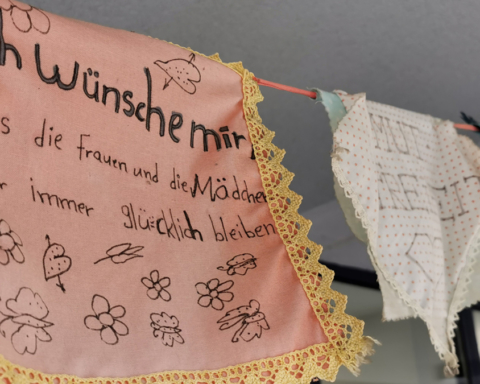 h wünsche mir,
s die Frauen und die Mädchen
r immer glücklich bleiben
MUT